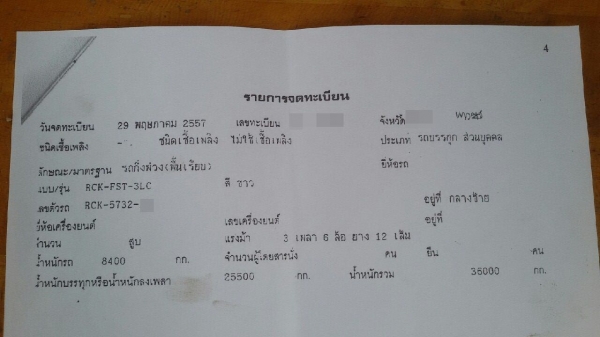 4
รายการจดทะเบียน
วันจดทะเบียน 29 พฤษภาคม 2557 เลขทะเบียน จังหวัด
ชนิดเชื้อเพลิง - ชนิดเชื้อเพลิง ไม่ใช้เชื้อเพลิง ประเภท รถบรรทุก ส่วนบุคคล
ลักษณะ/มาตรฐาน รถกึ่งพ่วง(พื้นเรียบ) ยี่ห้อรถ
แบบ/รุ่น RCK-FST-3LC สี ขาว
เลขตัวรถ RCK-5732- อยู่ที่ กลางซ้าย
ยี่ห้อเครื่องยนต์ เลขเครื่องยนต์ อยู่ที่
จำนวน สูบ แรงม้า 3 เพลา 6 ล้อ ยาง 12 เส้น
น้ำหนักรถ 8400 กก. จำนวนผู้โดยสารนั่ง คน ยืน คน
น้ำหนักบรรทุกหรือน้ำหนักลงเพลา 25500 กก. น้ำหนักรวม กก.